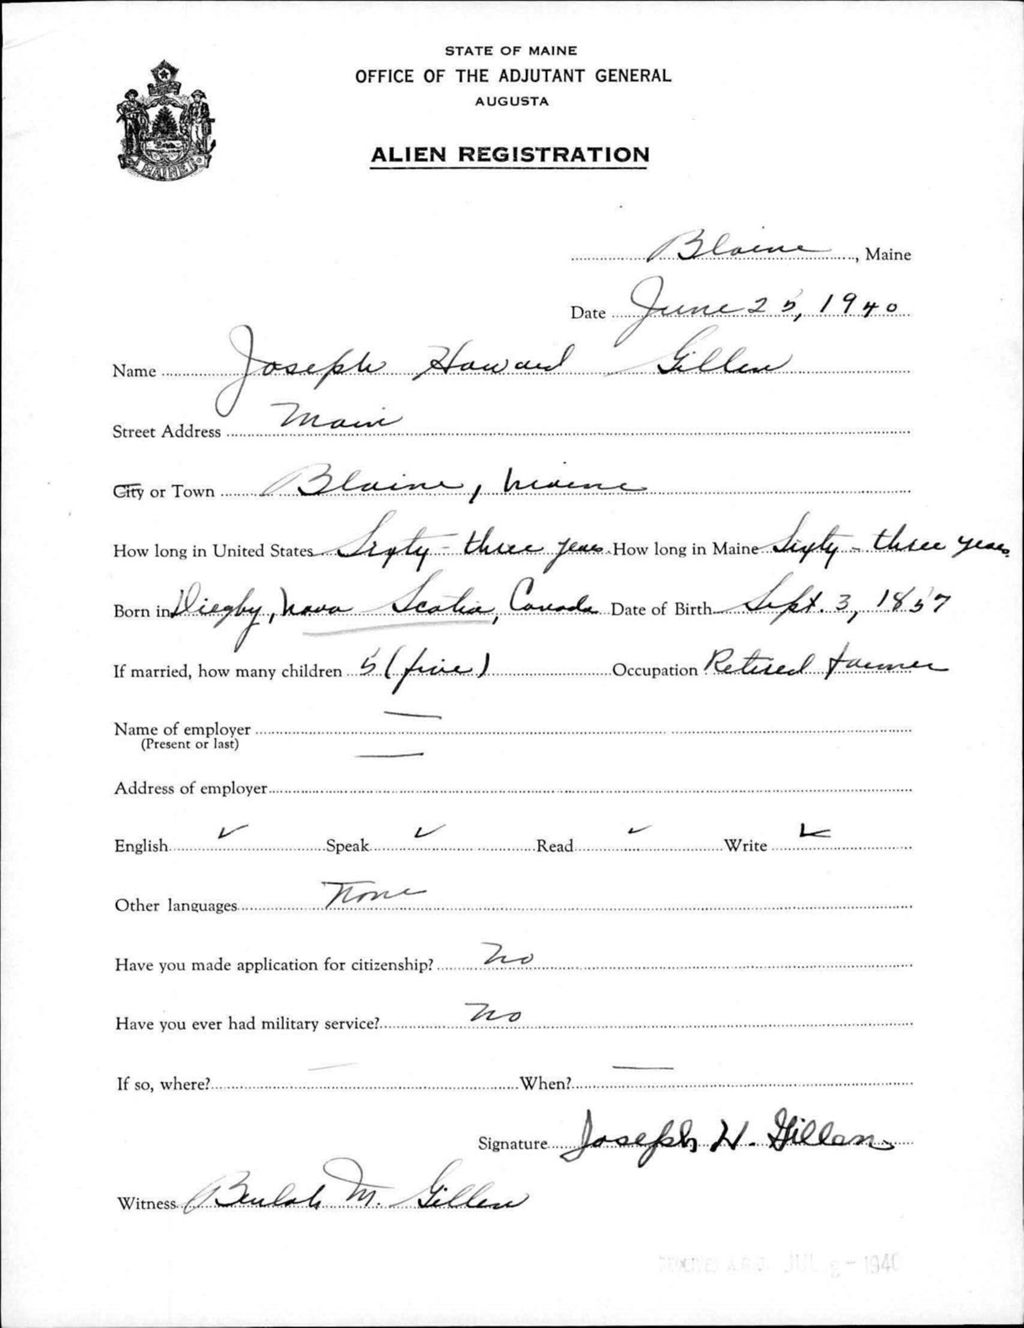 STATE OF MAINE
OFFICE OF THE ADJUTANT GENERAL
AUGUSTA
ALIEN REGISTRATION
MAINE
Blaine, Maine
Date June 25, 1940
Name Joseph Howard Gillen
Street Address Main
City or Town Blaine, Maine
How long in United States Sixty-three years How long in Maine Sixty-three years
Born in Diegby, Nova Scotia, Canada Date of Birth Sept. 3, 1857
If married, how many children 5 (five) Occupation Retired farmer
Name of employer —
(Present or last)
Address of employer —
English ✓ Speak ✓ Read ✓ Write ✓
Other languages None
Have you made application for citizenship? No
Have you ever had military service? No
If so, where? — When? —
Signature Joseph H. Gillen
Witness Beulah M. Gillen
JUL 1940